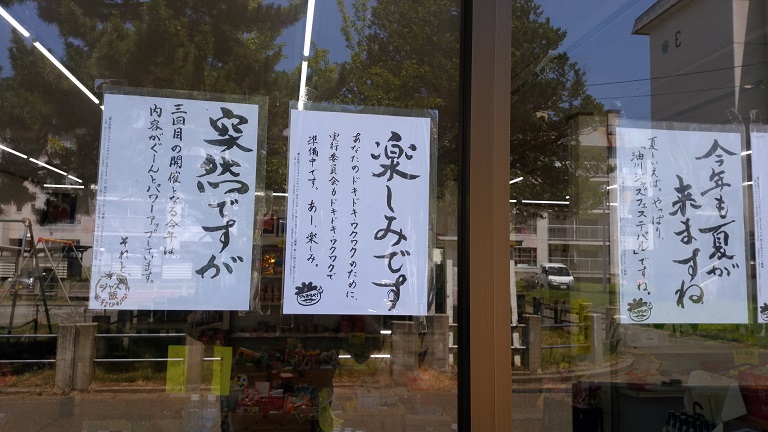 今年も夏が
来ますね
夏といえば。やっぱり。
「油川ジャズフェスティバル」ですね。
楽しみです
あなたのドキドキ、ワクワクのために、
実行委員会もドキドキ、ワクワクで
準備中です。あー、楽しみ。
突然ですが
三回目の開催となる今年は
内容がぐーんとパワーアップしています。
それは
ジャズ飯
3